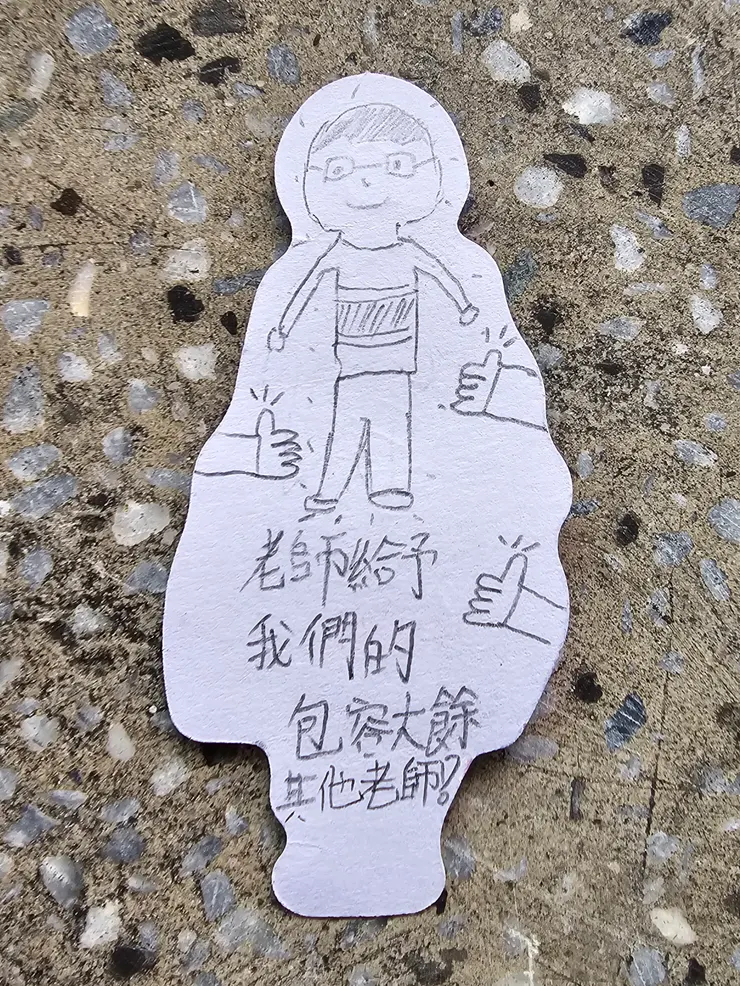 老師給予
我們的
包容大餘
其他老師?